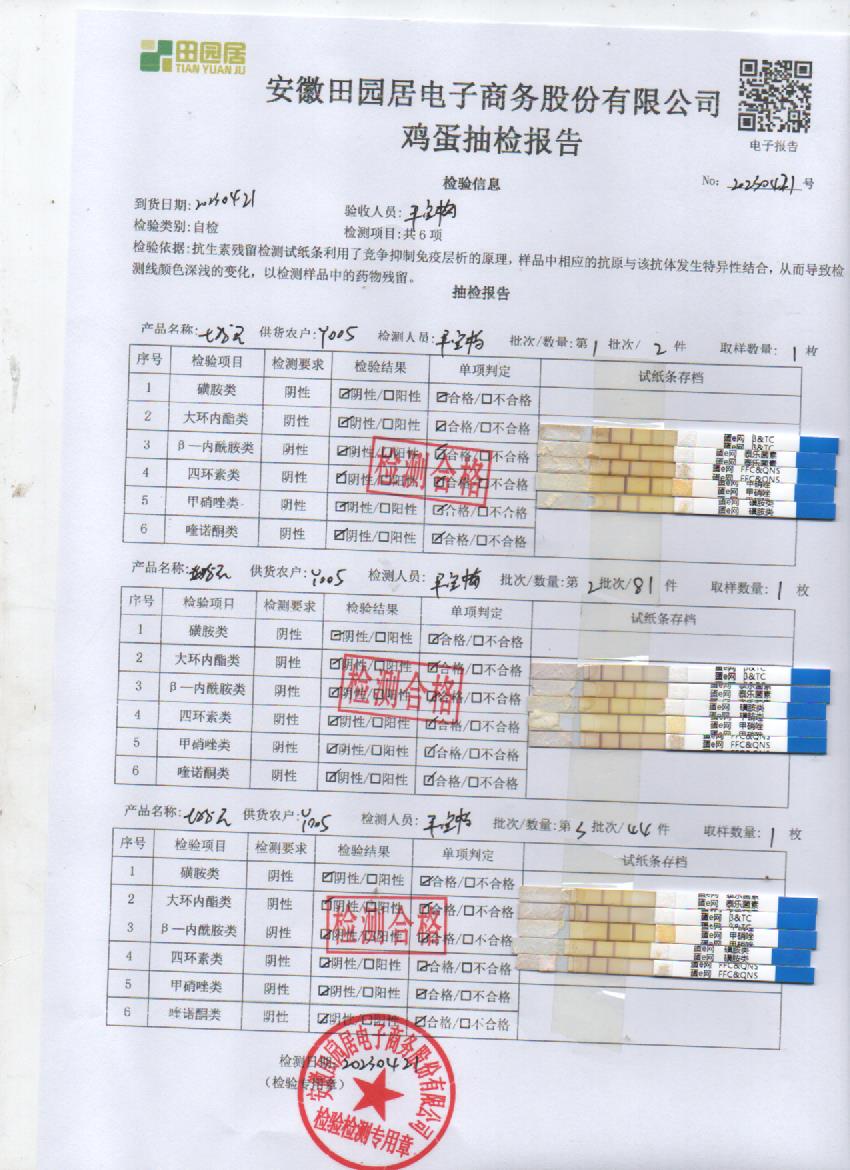 田园居
TIAN YUAN JU
安徽田园居电子商务股份有限公司
鸡蛋抽检报告
电子报告
检验信息
No: 20230421 号
到货日期: 20230421
验收人员:
检验类别: 自检
检测项目: 共6项
检验依据: 抗生素残留检测试纸条利用了竞争抑制免疫层析的原理，样品中相应的抗原与该抗体发生特异性结合，从而导致检
测线颜色深浅的变化，以检测样品中的药物残留。
抽检报告
产品名称: 供货农户: Y005 检测人员: 批次/数量: 第1批次/2件 取样数量: 1枚
序号 检验项目 检测要求 检验结果 单项判定 试纸条存档
1 磺胺类 阴性 ☑阴性/☐阳性 ☑合格/☐不合格
2 大环内酯类 阴性 ☑阴性/☐阳性 ☑合格/☐不合格
3 β—内酰胺类 阴性 ☑阴性/☐阳性 ☑合格/☐不合格
4 四环素类 阴性 ☑阴性/☐阳性 ☑合格/☐不合格
5 甲硝唑类 阴性 ☑阴性/☐阳性 ☑合格/☐不合格
6 喹诺酮类 阴性 ☑阴性/☐阳性 ☑合格/☐不合格
检测合格
蛋e网 β&TC
蛋e网 泰乐菌素
蛋e网 FFC&QNS
蛋e网 甲硝唑
蛋e网 磺胺类
产品名称: 供货农户: Y005 检测人员: 批次/数量: 第2批次/81件 取样数量: 1枚
序号 检验项目 检测要求 检验结果 单项判定 试纸条存档
1 磺胺类 阴性 ☑阴性/☐阳性 ☑合格/☐不合格
2 大环内酯类 阴性 ☑阴性/☐阳性 ☑合格/☐不合格
3 β—内酰胺类 阴性 ☑阴性/☐阳性 ☑合格/☐不合格
4 四环素类 阴性 ☑阴性/☐阳性 ☑合格/☐不合格
5 甲硝唑类 阴性 ☑阴性/☐阳性 ☑合格/☐不合格
6 喹诺酮类 阴性 ☑阴性/☐阳性 ☑合格/☐不合格
检测合格
蛋e网 β&TC
蛋e网 泰乐菌素
蛋e网 磺胺类
蛋e网 甲硝唑
蛋e网 FFC&QNS
产品名称: 供货农户: Y005 检测人员: 批次/数量: 第3批次/44件 取样数量: 1枚
序号 检验项目 检测要求 检验结果 单项判定 试纸条存档
1 磺胺类 阴性 ☑阴性/☐阳性 ☑合格/☐不合格
2 大环内酯类 阴性 ☑阴性/☐阳性 ☑合格/☐不合格
3 β—内酰胺类 阴性 ☑阴性/☐阳性 ☑合格/☐不合格
4 四环素类 阴性 ☑阴性/☐阳性 ☑合格/☐不合格
5 甲硝唑类 阴性 ☑阴性/☐阳性 ☑合格/☐不合格
6 喹诺酮类 阴性 ☑阴性/☐阳性 ☑合格/☐不合格
检测合格
蛋e网 泰乐菌素
蛋e网 β&TC
蛋e网 甲硝唑
蛋e网 磺胺类
蛋e网 FFC&QNS
检测日期: 20230421
(检验专用章)
安徽田园居电子商务股份有限公司
检验检测专用章